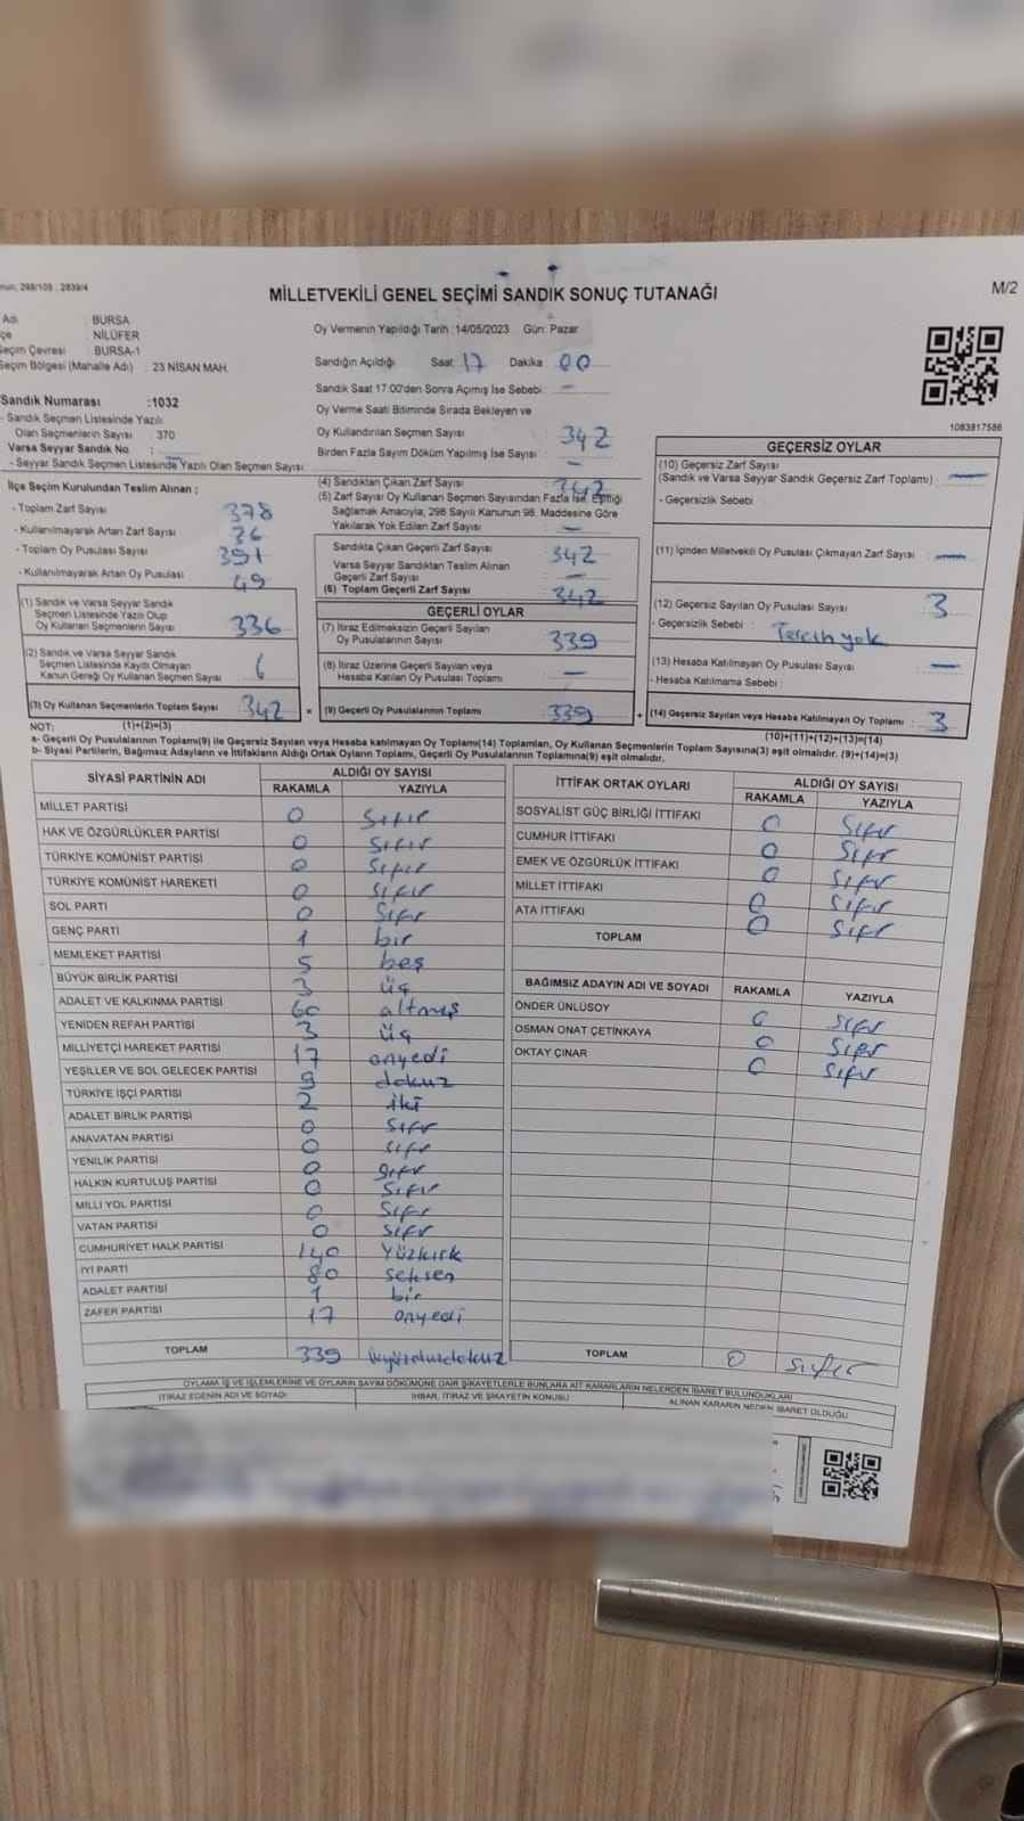 MİLLETVEKİLİ GENEL SEÇİMİ SANDIK SONUÇ TUTANAĞI
M/2
Adı : BURSA
: NİLÜFER
Seçim Çevresi : BURSA-1
Seçim Bölgesi (Mahalle Adı) : 23 NİSAN MAH.
Sandık Numarası :1032
- Sandık Seçmen Listesinde Yazılı
Olan Seçmenlerin Sayısı 370
Varsa Seyyar Sandık No :
- Seyyar Sandık Seçmen Listesinde Yazılı Olan Seçmen Sayısı :
İlçe Seçim Kurulundan Teslim Alınan :
- Toplam Zarf Sayısı 378
- Kullanılmayarak Artan Zarf Sayısı 36
- Toplam Oy Pusulası Sayısı 391
- Kullanılmayarak Artan Oy Pusulası 49
(1) Sandık ve Varsa Seyyar Sandık
Seçmen Listesinde Yazılı Olup
Oy Kullanan Seçmenlerin Sayısı 336
(2) Sandık ve Varsa Seyyar Sandık
Seçmen Listesinde Kaydı Olmayan
Kanun Gereği Oy Kullanan Seçmen Sayısı 6
(3) Oy Kullanan Seçmenlerin Toplam Sayısı 342
(1)+(2)=(3)
Oy Vermenin Yapıldığı Tarih :14/05/2023 Gün: Pazar
Sandığın Açıldığı Saat 17 Dakika 00
Sandık Saat 17.00'den Sonra Açılmış İse Sebebi : -
Oy Verme Saati Bitiminde Sırada Bekleyen ve
Oy Kullandırılan Seçmen Sayısı : 342
Birden Fazla Sayım Döküm Yapılmış İse Sayısı : -
(4) Sandıktan Çıkan Zarf Sayısı : 342
(5) Zarf Sayısı Oy Kullanan Seçmen Sayısından Fazla İse, Eşitliği
Sağlamak Amacıyla, 298 Sayılı Kanunun 98. Maddesine Göre
Yakılarak Yok Edilen Zarf Sayısı : -
Sandıkta Çıkan Geçerli Zarf Sayısı 342
Varsa Seyyar Sandıktan Teslim Alınan
Geçerli Zarf Sayısı -
(6) Toplam Geçerli Zarf Sayısı 342
GEÇERLİ OYLAR
(7) İtiraz Edilmeksizin Geçerli Sayılan
Oy Pusulalarının Sayısı 339
(8) İtiraz Üzerine Geçerli Sayılan veya
Hesaba Katılan Oy Pusulası Toplamı -
= (9) Geçerli Oy Pusulalarının Toplamı 339
1083817586
GEÇERSİZ OYLAR
(10) Geçersiz Zarf Sayısı
(Sandık ve Varsa Seyyar Sandık Geçersiz Zarf Toplamı) : -
- Geçersizlik Sebebi :
(11) İçinden Milletvekili Oy Pusulası Çıkmayan Zarf Sayısı : -
(12) Geçersiz Sayılan Oy Pusulası Sayısı : 3
- Geçersizlik Sebebi : Tercih yok
(13) Hesaba Katılmayan Oy Pusulası Sayısı : -
- Hesaba Katılmama Sebebi :
+ (14) Geçersiz Sayılan veya Hesaba Katılmayan Oy Toplamı : 3
(10)+(11)+(12)+(13)=(14)
NOT:
a- Geçerli Oy Pusulalarının Toplamı(9) ile Geçersiz Sayılan veya Hesaba katılmayan Oy Toplamı(14) Toplamları, Oy Kullanan Seçmenlerin Toplam Sayısına(3) eşit olmalıdır. (9)+(14)=(3)
b- Siyasi Partilerin, Bağımsız Adayların ve İttifakların Aldığı Ortak Oyların Toplamı, Geçerli Oy Pusulalarının Toplamına(9) eşit olmalıdır.
SİYASİ PARTİNİN ADI ALDIĞI OY SAYISI
RAKAMLA YAZIYLA
MİLLET PARTİSİ 0 sıfır
HAK VE ÖZGÜRLÜKLER PARTİSİ 0 sıfır
TÜRKİYE KOMÜNİST PARTİSİ 0 sıfır
TÜRKİYE KOMÜNİST HAREKETİ 0 sıfır
SOL PARTİ 0 sıfır
GENÇ PARTİ 1 bir
MEMLEKET PARTİSİ 5 beş
BÜYÜK BİRLİK PARTİSİ 3 üç
ADALET VE KALKINMA PARTİSİ 60 altmış
YENİDEN REFAH PARTİSİ 3 üç
MİLLİYETÇİ HAREKET PARTİSİ 17 onyedi
YEŞİLLER VE SOL GELECEK PARTİSİ 9 dokuz
TÜRKİYE İŞÇİ PARTİSİ 2 iki
ADALET BİRLİK PARTİSİ 0 sıfır
ANAVATAN PARTİSİ 0 sıfır
YENİLİK PARTİSİ 0 sıfır
HALKIN KURTULUŞ PARTİSİ 0 sıfır
MİLLİ YOL PARTİSİ 0 sıfır
VATAN PARTİSİ 0 sıfır
CUMHURİYET HALK PARTİSİ 140 Yüzkırk
İYİ PARTİ 80 seksen
ADALET PARTİSİ 1 bir
ZAFER PARTİSİ 17 onyedi
TOPLAM 339 üçyüzotuzdokuz
İTTİFAK ORTAK OYLARI ALDIĞI OY SAYISI
RAKAMLA YAZIYLA
SOSYALİST GÜÇ BİRLİĞİ İTTİFAKI 0 sıfır
CUMHUR İTTİFAKI 0 sıfır
EMEK VE ÖZGÜRLÜK İTTİFAKI 0 sıfır
MİLLET İTTİFAKI 0 sıfır
ATA İTTİFAKI 0 sıfır
TOPLAM
BAĞIMSIZ ADAYIN ADI VE SOYADI RAKAMLA YAZIYLA
ÖNDER ÜNLÜSOY 0 sıfır
OSMAN ONAT ÇETİNKAYA 0 sıfır
OKTAY ÇINAR 0 sıfır
TOPLAM 0 sıfır
OYLAMA İŞ VE İŞLEMLERİNE VE OYLARIN SAYIM DÖKÜMÜNE DAİR ŞİKAYETLERLE BUNLARA AİT KARARLARIN NELERDEN İBARET BULUNDUKLARI
İTİRAZ EDENİN ADI VE SOYADI İHBAR, İTİRAZ VE ŞİKAYETİN KONUSU ALINAN KARARIN NEDEN İBARET OLDUĞU